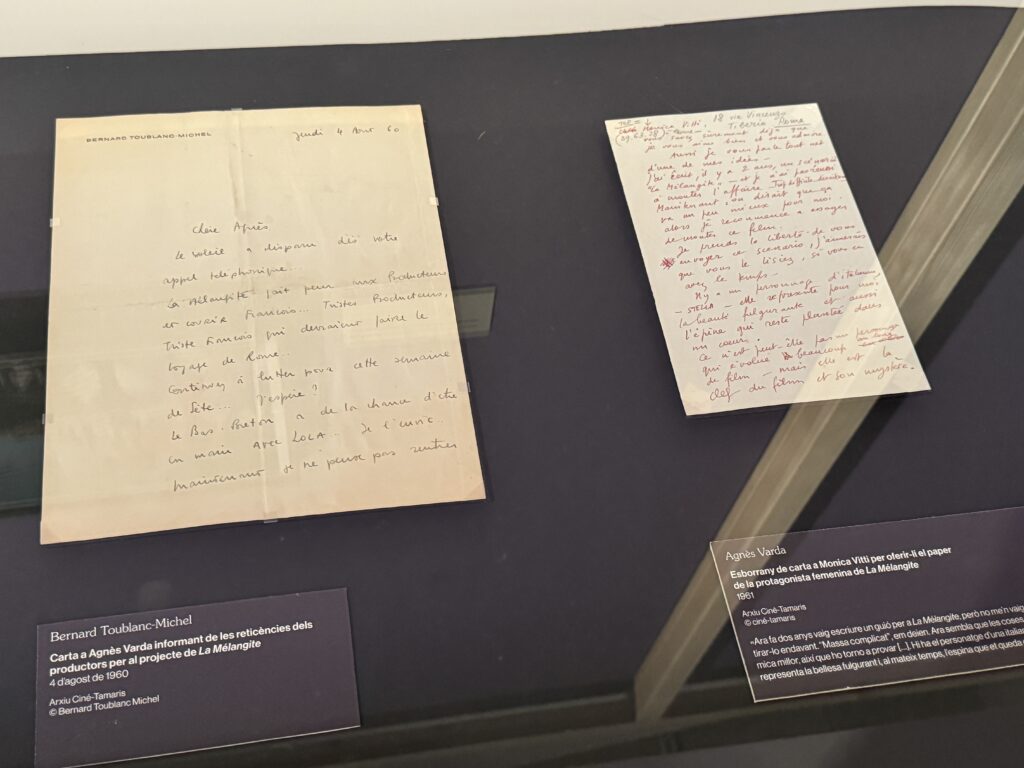 BERNARD TOUBLANC-MICHEL
Jeudi 4 Aout 60
Chère Agnès
Le soleil a disparu dès votre
appel téléphonique...
La Mélangite fait peur aux Producteurs
et courir François... Tristes Producteurs,
triste François qui devraient faire le
voyage de Rome...
Continuez à lutter pour cette semaine
de Sète... J'espère ?
Le Bas-Breton a de la chance d'être
en main avec LOLA.. Je l'envie..
Maintenant je ne pense pas rentrer
Monica Vitti, 18 via Vincenzo
Tiberio Rome
vous savez sûrement déjà que
je vous aime bien et vous admire
Aussi je vous parle tout net
d'une de mes idées -
J'ai écrit, il y a 2 ans, un scénario
"La Mélangite" - et je n'ai pas réussi
à monter l'affaire. Trop difficile
Maintenant, on dirait que ça
va un peu mieux pour moi.
alors je recommence à essayer
de monter ce film.
Je prends la liberté de vous
envoyer ce scénario, j'aimerais
que vous le lisiez, si vous en
avez le temps -
Il y a un personnage d'italienne
- STELLA - elle représente pour moi
la beauté fulgurante et aussi
l'épine qui reste plantée dans
un coeur.
Ce n'est peut-être pas un personnage
qui évolue beaucoup
de film - mais elle est la
clef du film et son mystère.
Bernard Toublanc-Michel
Carta a Agnès Varda informant de les reticències dels
productors per al projecte de La Mélangite
4 d'agost de 1960
Arxiu Ciné-Tamaris
© Bernard Toublanc Michel
Agnès Varda
Esborrany de carta a Monica Vitti per oferir-li el paper
de la protagonista femenina de La Mélangite
1961
Arxiu Ciné-Tamaris
© ciné-tamaris
«Ara fa dos anys vaig escriure un guió per a La Mélangite, però no me'n vaig
tirar-lo endavant. "Massa complicat", em deien. Ara sembla que les coses
mica millor, així que ho torno a provar [...]. Hi ha el personatge d'una italiana
representa la bellesa fulgurant i, al mateix temps, l'espina que et queda